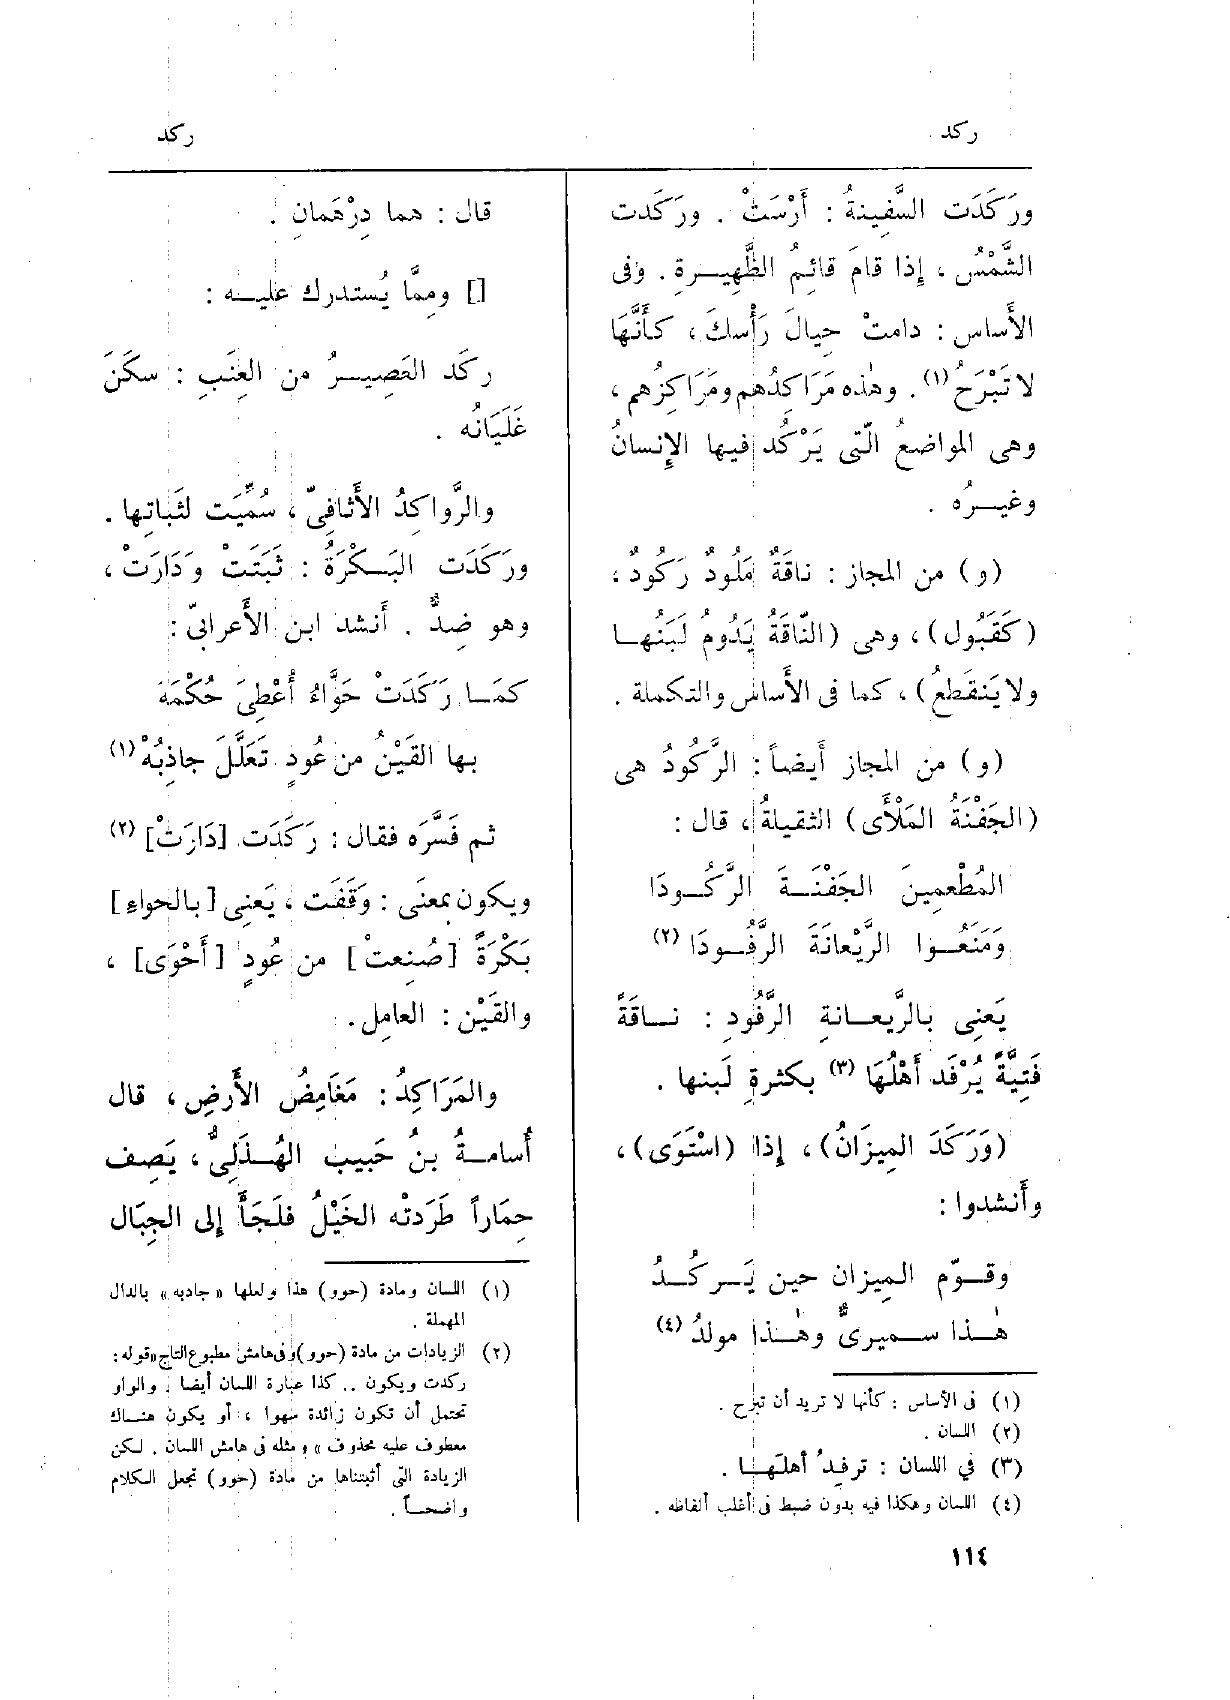 ركد
ركد
ورَكَدَت السَّفِينةُ : أَرْسَتْ . ورَكَدت
الشَّمْسُ ، إِذا قامَ قائِمُ الظَّهِيـرةِ . وفى
الأَساس : دامتْ حِيالَ رَأْسِكَ ، كأَنَّهَا
لا تَبْرَحُ (١) . وهٰذه مَرَاكِدُهم ومَرَاكِزُهم ،
وهى المواضعُ الَّتى يَرْكُد فيها الإِنسانُ
وغيـرُه .
(و) من المجاز : ناقَةٌ مَلُودٌ رَكُودٌ ،
(كقَبُول) ، وهى (النَّاقَةُ يَدُومُ لَبَنُهـا
ولا يَنقطعُ) ، كما فى الأَساس والتكملة .
(و) من المجاز أَيضاً : الرَّكُودُ هى
(الجَفْنَةُ المَلْأَى) الثقيلةُ ، قال :
المُطْعِمِينَ الجَفْنَـةَ الرَّكُـودَا
وَمَنَعُـوا الرَّيْعَانَةَ الرَّفُـودَا (٢)
يَعنِى بالرَّيعـانةِ الرَّفُودِ : نـاقَةً
فَتِيَّةً يُرْفَد أَهْلُهَا (٣) بكثرةِ لَبنها .
(وَرَكَدَ المِيزَانُ) ، إِذا (اسْتَوَى) ،
وأَنشدوا :
وقـوّم الميزان حين يَـركُـدُ
هٰـذا سـميرىٌّ وهٰـذا مولدُ (٤)
(١) فى الأساس : كأنها لا تريد أن تبرح .
(٢) اللسان .
(٣) في اللسان : ترفِدُ أهلَهـا .
(٤) اللسان وهكذا فيه بدون ضبط فى أغلب ألفاظه .
قال : هما دِرْهَمانِ .
[] ومِمَّا يُستدرك عليـه :
ركَد العَصِيـرُ من العِنَبِ : سكَنَ
غَلَيَانُه .
والرَّواكِدُ الأَثافِىّ ، سُمِّيَت لثَباتِها .
ورَكَدَت البَـكْرَةُ : ثَبَتَتْ ودَارَتْ ،
وهو ضِدٌّ . أَنشد ابن الأَعرابىّ :
كمَـا رَكَدَتْ حَوَّاءُ أُعْطِىَ حُكْمَهُ
بها القَيْنُ من عُودٍ تَعَلَّلَ جاذِبُهْ (١)
ثم فَسَّرَه فقال : رَكَدَت [دَارَتْ] (٢)
ويكون بمعنَى : وَقَفَت ، يَعنِى [بالحواءِ]
بَكْرَةً [صُنِعتْ] من عُودٍ [أَحْوَى] ،
والقَيْن : العامِل .
والمَرَاكِدُ : مَغَامِضُ الأَرضِ ، قال
أُسامـةُ بنُ حَبيبٍ الهُـذَلِىُّ ، يَصِف
حِمَاراً طَرَدتْه الخَيْلُ فلَجَأَ إِلى الجِبَال
(١) اللسان ومادة (حوو) هذا ولعلها «جاديه» بالدال
المهملة .
(٢) الزيادات من مادة (حوو) وفى هامش مطبوع التاج «قوله :
ركدت ويكون .. كذا عبارة اللسان أيضا . والواو
تحتمل أن تكون زائدة سهوا ، أو يكون هنـاك
معطوف عليه محذوف» ومثله فى هامش اللسان . لـكن
الزيادة التى أثبتناها من مادة (حوو) تجعل الـكلام
واضحـاً .
١١٤